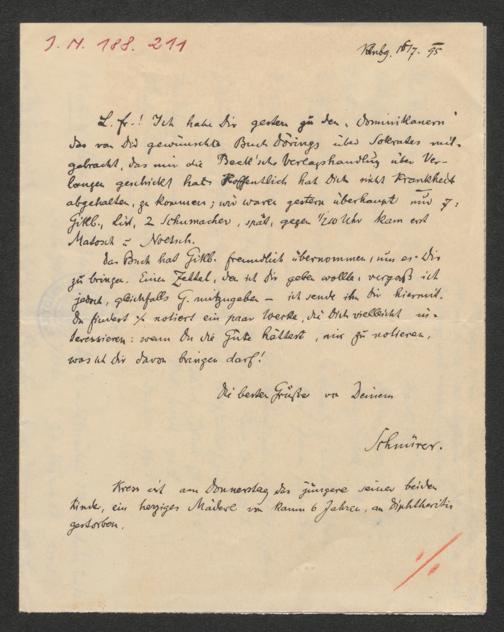 J. N. 188.211
Klnbg. 16/7. 95
L. fr.! Ich habe Dir gestern zu den „Dominikanern“
das von Dir gewünschte Buch Dörings über Sokrates mit-
gebracht, das mir die Beck'sche Verlagshandlung über Ver-
langen geschickt hat. Hoffentlich hat Dich nicht Krankheit
abgehalten, zu kommen; wir waren gestern überhaupt nur 7:
Gittlb., List, 2 Schumacher, spät, gegen ½10 Uhr kam erst
Matosch u Noetsch.
Das Buch hat Gittlb. freundlich übernommen, um es Dir
zu bringen. Einen Zettel, den ich Dir geben wollte, vergaß ich
jedoch, gleichfalls G. mitzugeben – ich sende ihn Dir hiermit.
Du findest notiert ein paar Werke, die Dich vielleicht in-
teressieren: wenn Du die Güte hättest, mir zu notieren,
was ich Dir davon bringen darf!
Die besten Grüße von Deinem
Schnürer.
Kress ist am Donnerstag das jüngere seiner beiden
Kinder, ein herziges Mäderl von kaum 6 Jahren, an Diphtheritis
gestorben.